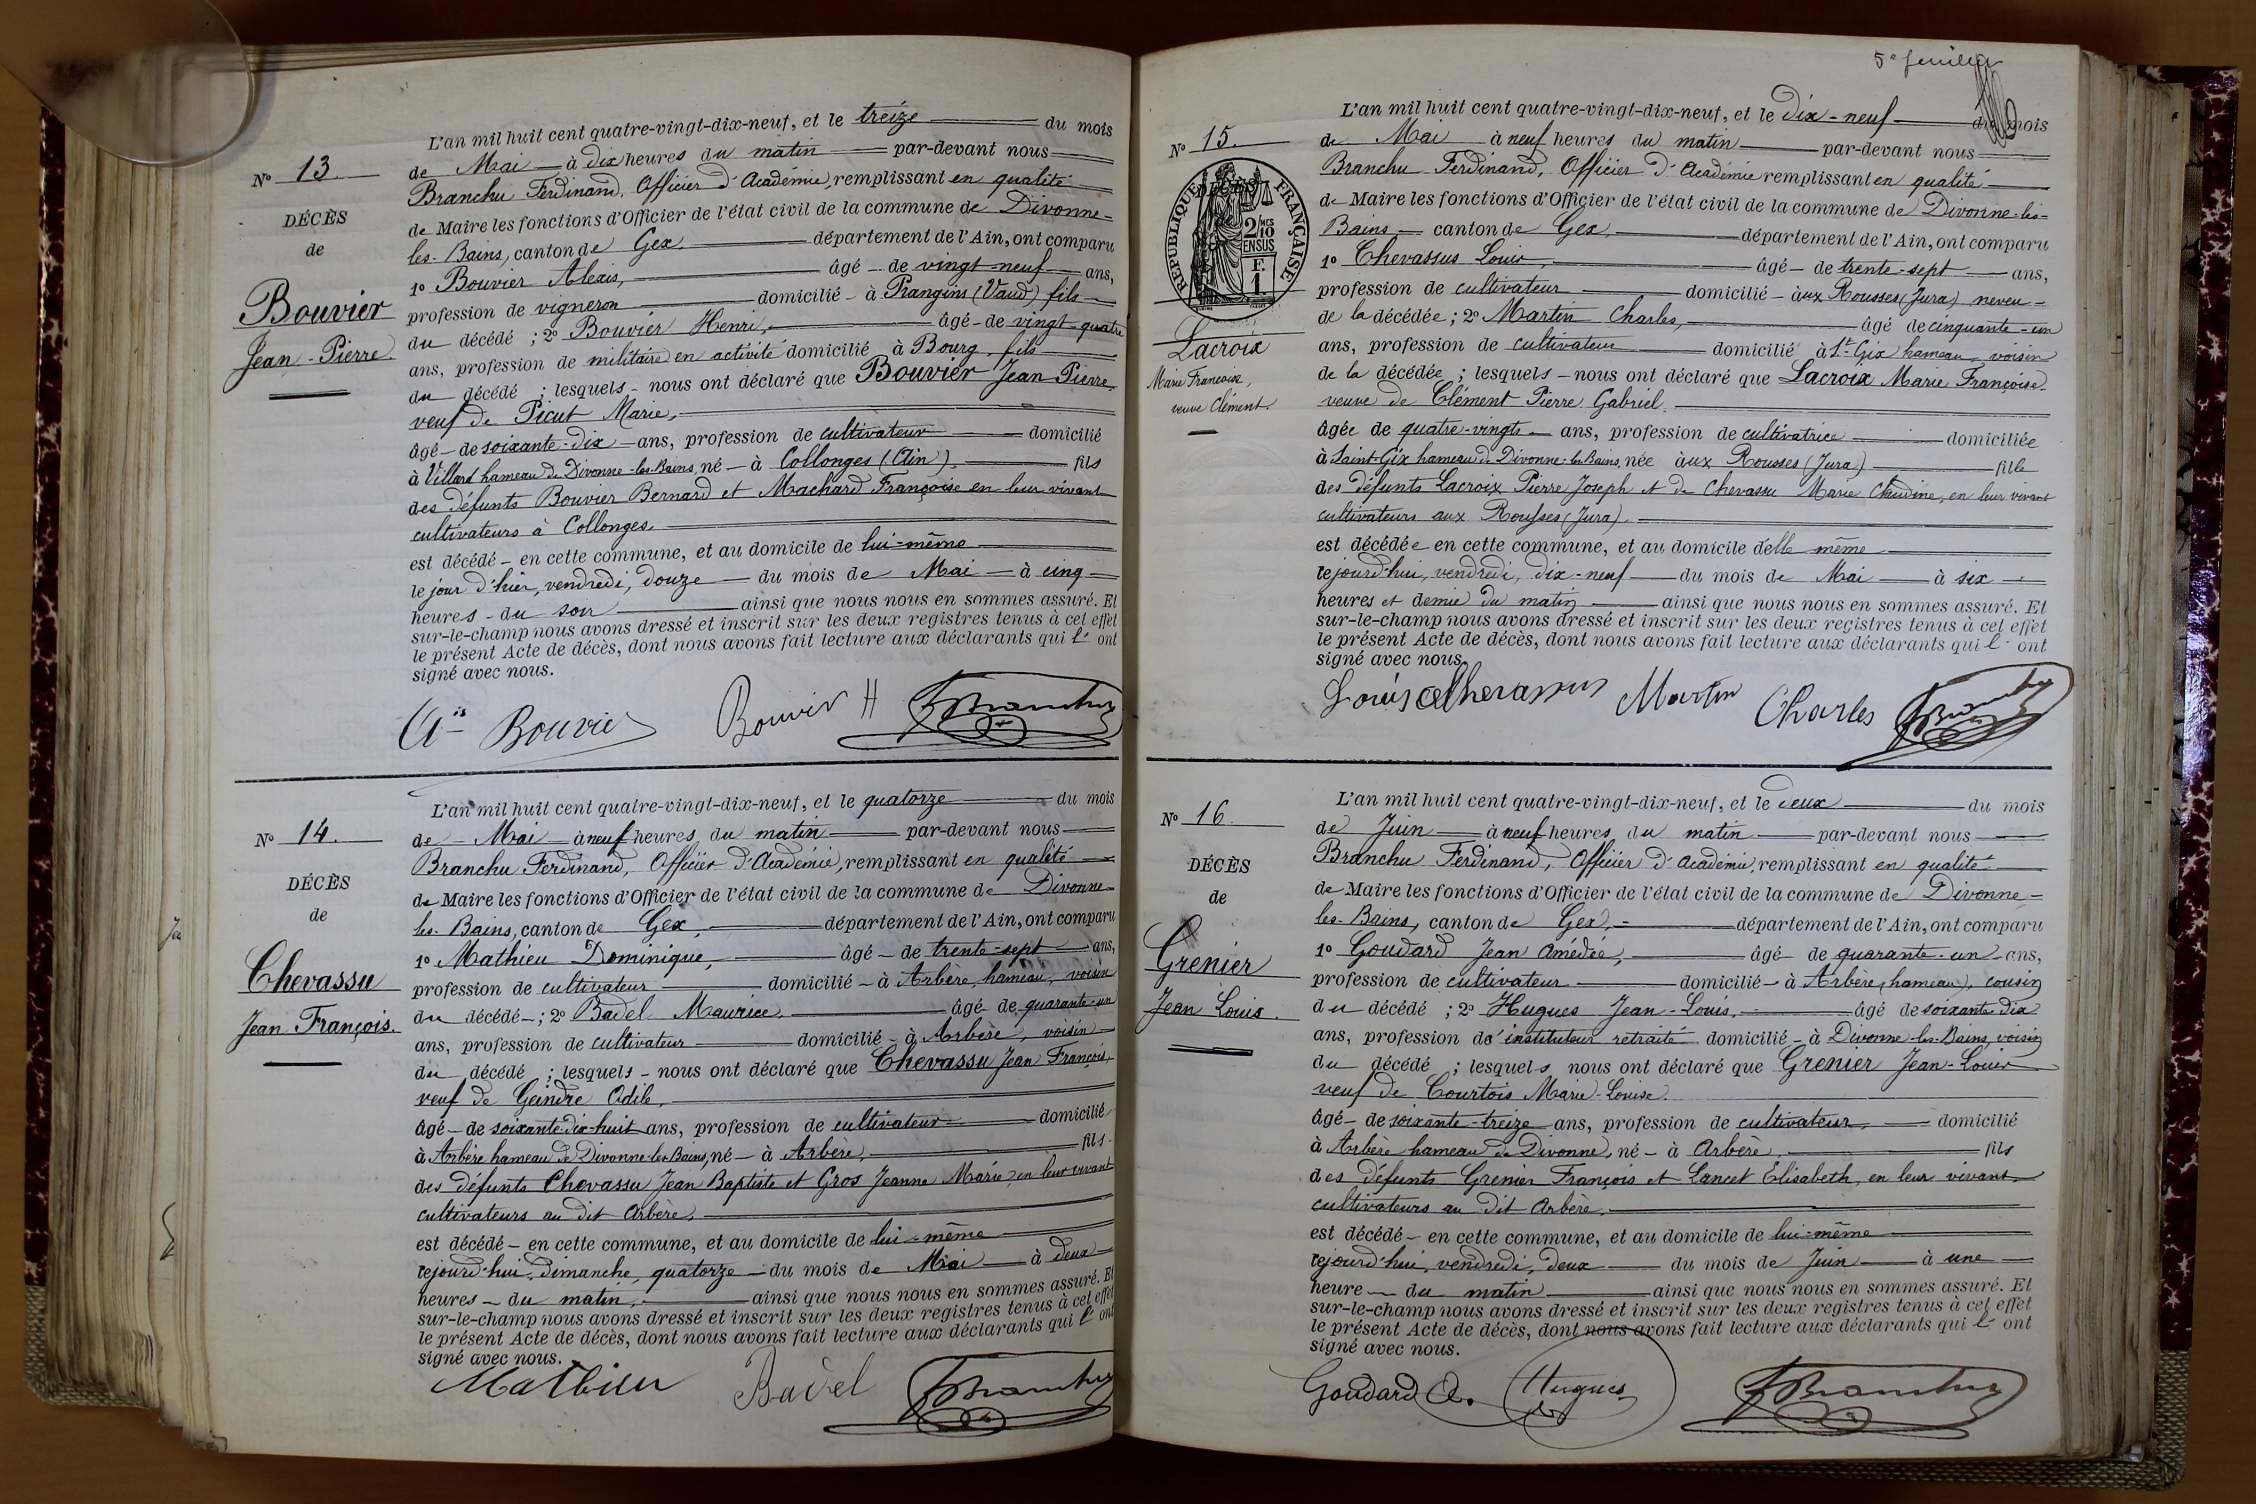 N° 13.
DÉCÈS
de
Bouvier
Jean-Pierre.
L'an mil huit cent quatre-vingt-dix-neuf, et le treize du mois
de Mai à dix heures du matin par-devant nous
Branchu Ferdinand, Officier d'Académie, remplissant en qualité
de Maire les fonctions d'Officier de l'état civil de la commune de Divonne-
les-Bains, canton de Gex, département de l'Ain, ont comparu
1° Bouvier Alexis, âgé de vingt-neuf ans,
profession de vigneron domicilié à Prangins (Vaud) fils
du décédé ; 2° Bouvier Henri, âgé de vingt-quatre
ans, profession de militaire en activité domicilié à Bourg, fils
du décédé ; lesquels nous ont déclaré que Bouvier Jean Pierre,
veuf de Picut Marie,
âgé de soixante-dix ans, profession de cultivateur domicilié
à Villard hameau de Divonne-les-Bains, né à Collonges (Ain), fils
des défunts Bouvier Bernard et Machard Françoise en leur vivant
cultivateurs à Collonges,
est décédé en cette commune, et au domicile de lui-même
le jour d'hier, vendredi, douze du mois de Mai à cinq
heures du soir ainsi que nous nous en sommes assuré. Et
sur-le-champ nous avons dressé et inscrit sur les deux registres tenus à cet effet
le présent Acte de décès, dont nous avons fait lecture aux déclarants qui l' ont
signé avec nous.
Ais Bouvier Bouvier H FBranchu
N° 14.
DÉCÈS
de
Chevassu
Jean François.
L'an mil huit cent quatre-vingt-dix-neuf, et le quatorze du mois
de Mai à neuf heures du matin par-devant nous
Branchu Ferdinand, Officier d'Académie, remplissant en qualité
de Maire les fonctions d'Officier de l'état civil de la commune de Divonne
les-Bains, canton de Gex, département de l'Ain, ont comparu
1° Mathieu Dominique, âgé de trente-sept ans,
profession de cultivateur domicilié à Arbère, hameau, voisin
du décédé ; 2° Badel Maurice, âgé de quarante-un
ans, profession de cultivateur domicilié à Arbère, voisin
du décédé ; lesquels nous ont déclaré que Chevassu Jean François,
veuf de Geindre Odile,
âgé de soixante-dix-huit ans, profession de cultivateur domicilié
à Arbère hameau de Divonne-les-Bains, né à Arbère, fils
des défunts Chevassu Jean Baptiste et Gros Jeanne Marie, en leur vivant
cultivateurs au dit Arbère,
est décédé en cette commune, et au domicile de lui-même
cejourd'hui, dimanche, quatorze du mois de Mai à deux
heures du matin, ainsi que nous nous en sommes assuré. Et
sur-le-champ nous avons dressé et inscrit sur les deux registres tenus à cet effet
le présent Acte de décès, dont nous avons fait lecture aux déclarants qui l' ont
signé avec nous.
Mathieu Badel FBranchu
5e feuillet
N° 15.
DÉCÈS
RÉPUBLIQUE FRANÇAISE
2/10 EN SUS
F. 1
Lacroix
Marie Francoise,
veuve Clément.
L'an mil huit cent quatre-vingt-dix-neuf, et le dix-neuf du mois
de Mai à neuf heures du matin par-devant nous
Branchu Ferdinand, Officier d'Académie remplissant en qualité
de Maire les fonctions d'Officier de l'état civil de la commune de Divonne-les-
Bains, canton de Gex, département de l'Ain, ont comparu
1° Chevassus Louis, âgé de trente-sept ans,
profession de cultivateur domicilié aux Rousses (Jura) neveu
de la décédée ; 2° Martin Charles, âgé de cinquante-un
ans, profession de cultivateur domicilié à St-Gix hameau, voisin
de la décédée ; lesquels nous ont déclaré que Lacroix Marie Françoise,
veuve de Clément Pierre Gabriel,
âgée de quatre-vingts ans, profession de cultivatrice domiciliée
à Saint-Gix hameau de Divonne-les-Bains, née aux Rousses (Jura) fille
des défunts Lacroix Pierre Joseph et de Chevassu Marie Claudine, en leur vivant
cultivateurs aux Rousses (Jura),
est décédée en cette commune, et au domicile d'elle même
cejourd'hui, vendredi, dix-neuf du mois de Mai à six
heures et demie du matin ainsi que nous nous en sommes assuré. Et
sur-le-champ nous avons dressé et inscrit sur les deux registres tenus à cet effet
le présent Acte de décès, dont nous avons fait lecture aux déclarants qui l' ont
signé avec nous.
Louis Chevassus Martin Charles FBranchu
N° 16.
DÉCÈS
de
Grenier
Jean Louis.
L'an mil huit cent quatre-vingt-dix-neuf, et le deux du mois
de Juin à neuf heures du matin par-devant nous
Branchu Ferdinand, Officier d'Académie, remplissant en qualité
de Maire les fonctions d'Officier de l'état civil de la commune de Divonne-
les-Bains, canton de Gex, département de l'Ain, ont comparu
1° Goudard Jean Amédée, âgé de quarante-un ans,
profession de cultivateur domicilié à Arbère, hameau), cousin
du décédé ; 2° Hugues Jean-Louis, âgé de soixante dix
ans, profession d'instituteur retraité domicilié à Divonne-les-Bains, voisin
du décédé ; lesquels nous ont déclaré que Grenier Jean-Louis
veuf de Courtois Marie-Louise,
âgé de soixante-treize ans, profession de cultivateur, domicilié
à Arbère hameau de Divonne, né à Arbère, fils
des défunts Grenier François et Lancet Elisabeth, en leur vivant
cultivateurs au dit Arbère,
est décédé en cette commune, et au domicile de lui-même
cejourd'hui, vendredi, deux du mois de Juin à une
heure du matin ainsi que nous nous en sommes assuré. Et
sur-le-champ nous avons dressé et inscrit sur les deux registres tenus à cet effet
le présent Acte de décès, dont nous avons fait lecture aux déclarants qui l' ont
signé avec nous.
Goudard A. Hugues FBranchu